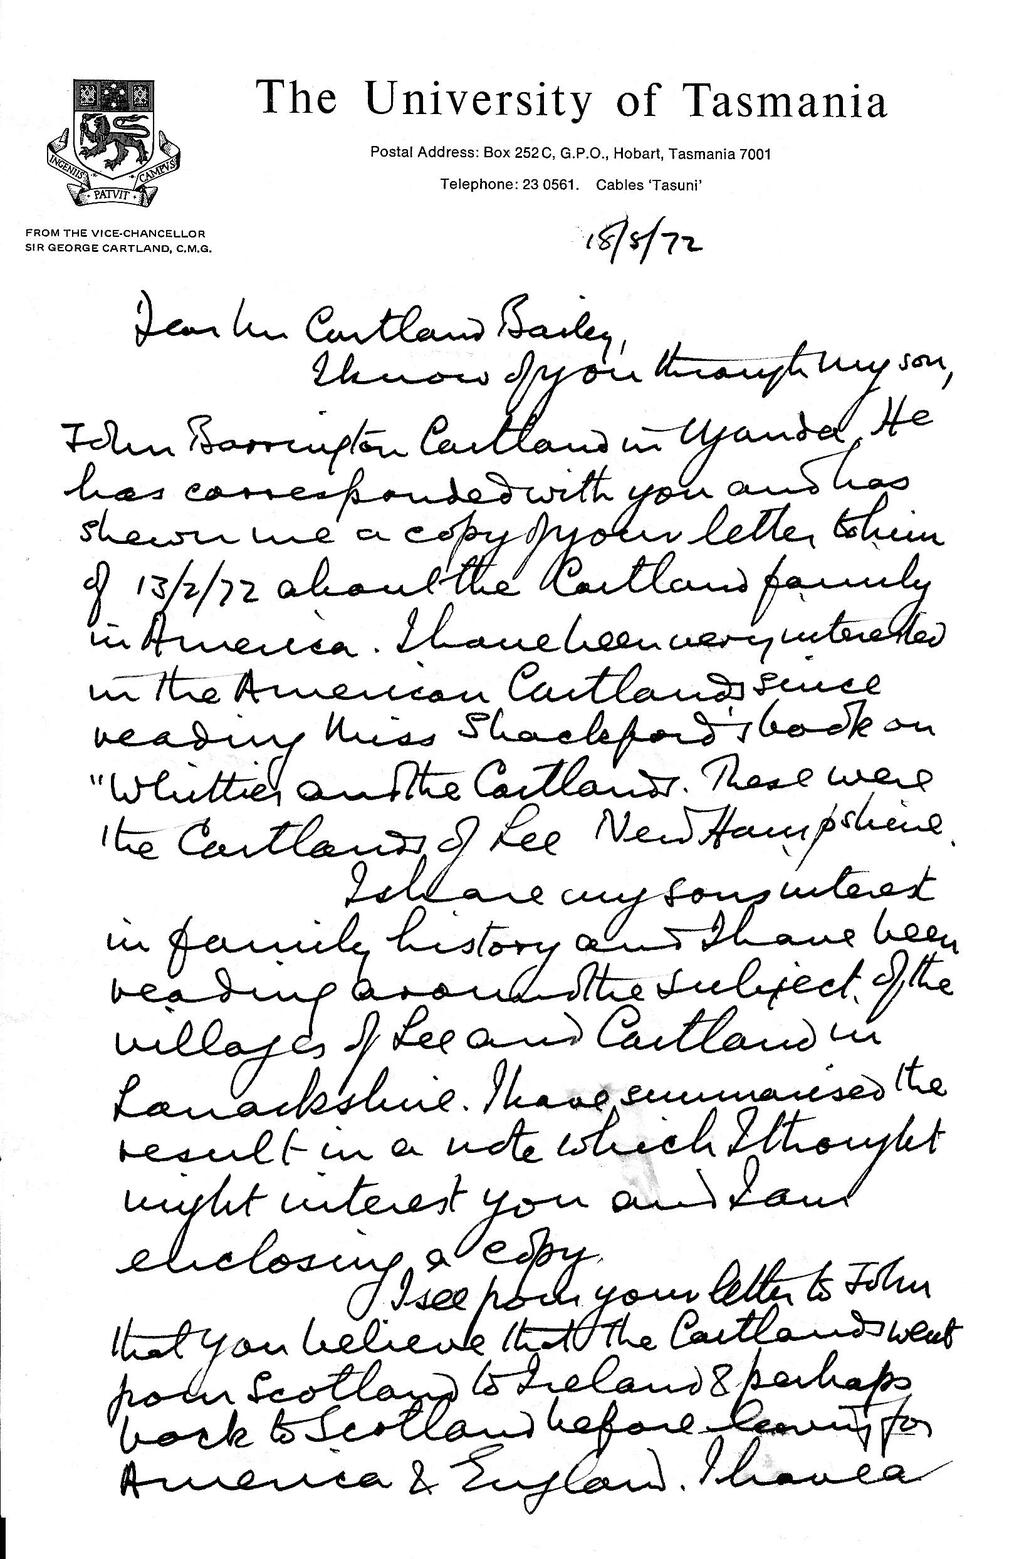 The University of Tasmania
Postal Address: Box 252C, G.P.O., Hobart, Tasmania 7001
Telephone: 23 0561. Cables 'Tasuni'
INGENIIS PATVIT CAMPVS
FROM THE VICE-CHANCELLOR
SIR GEORGE CARTLAND, C.M.G.
18/5/72
Dear Mr Cartland Bailey,
I know of you through my son,
John Barrington Cartland in Uganda. He
has corresponded with you and has
shewn me a copy of your letter to him
of 13/2/72 about the Cartland family
in America. I have been very interested
in the American Cartlands since
reading Miss Shackford's book on
"Whittier and the Cartlands. These were
the Cartlands of Lee New Hampshire.
I share my sons interest
in family history and I have been
reading around the subject of the
villages of Lee and Cartland in
Lanarkshire. I have summarised the
result in a note which I thought
might interest you and I am
enclosing a copy.
I see from your letter to John
that you believe that the Cartlands went
from Scotland to Ireland & perhaps
back to Scotland before leaving for
America & England. I have a